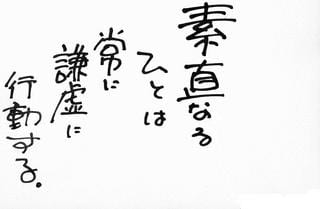 素直なる
ひとは
常に
謙虚に
行動する。